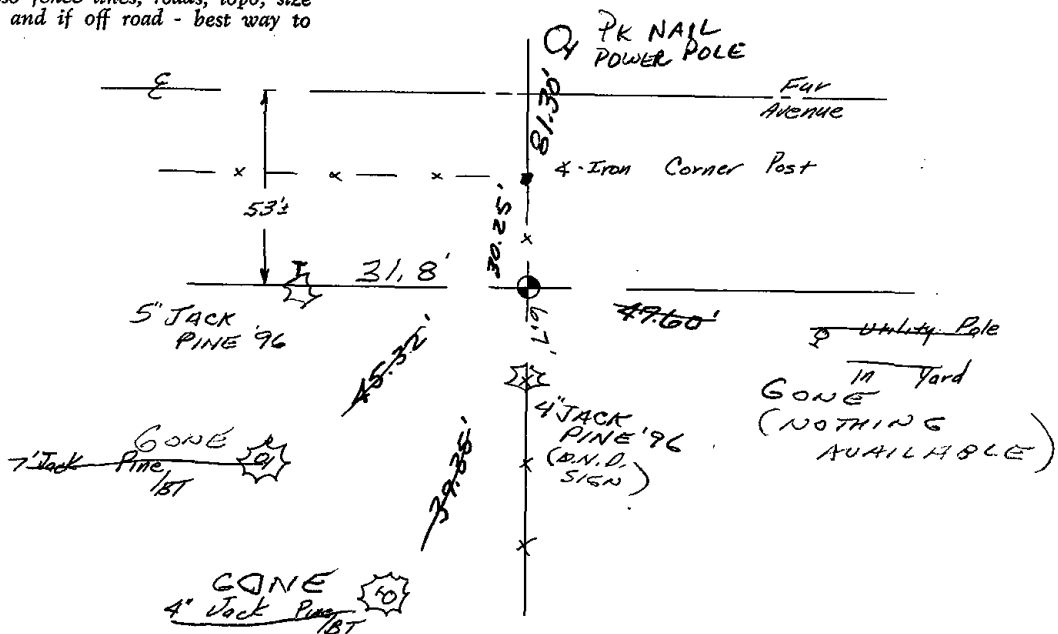 so fence lines, roads, topo, size
and if off road - best way to
PK NAIL
POWER POLE
81.30'
Fur
Avenue
4-Iron Corner Post
53'±
30.25'
31.8'
5" JACK
PINE '96
49.60'
Utility Pole
In Yard
GONE
(NOTHING
AVAILABLE)
45.32'
4" JACK
PINE '96
SIGN)
GONE
7" Jack Pine/BT
GONE
4" Jack Pine/BT